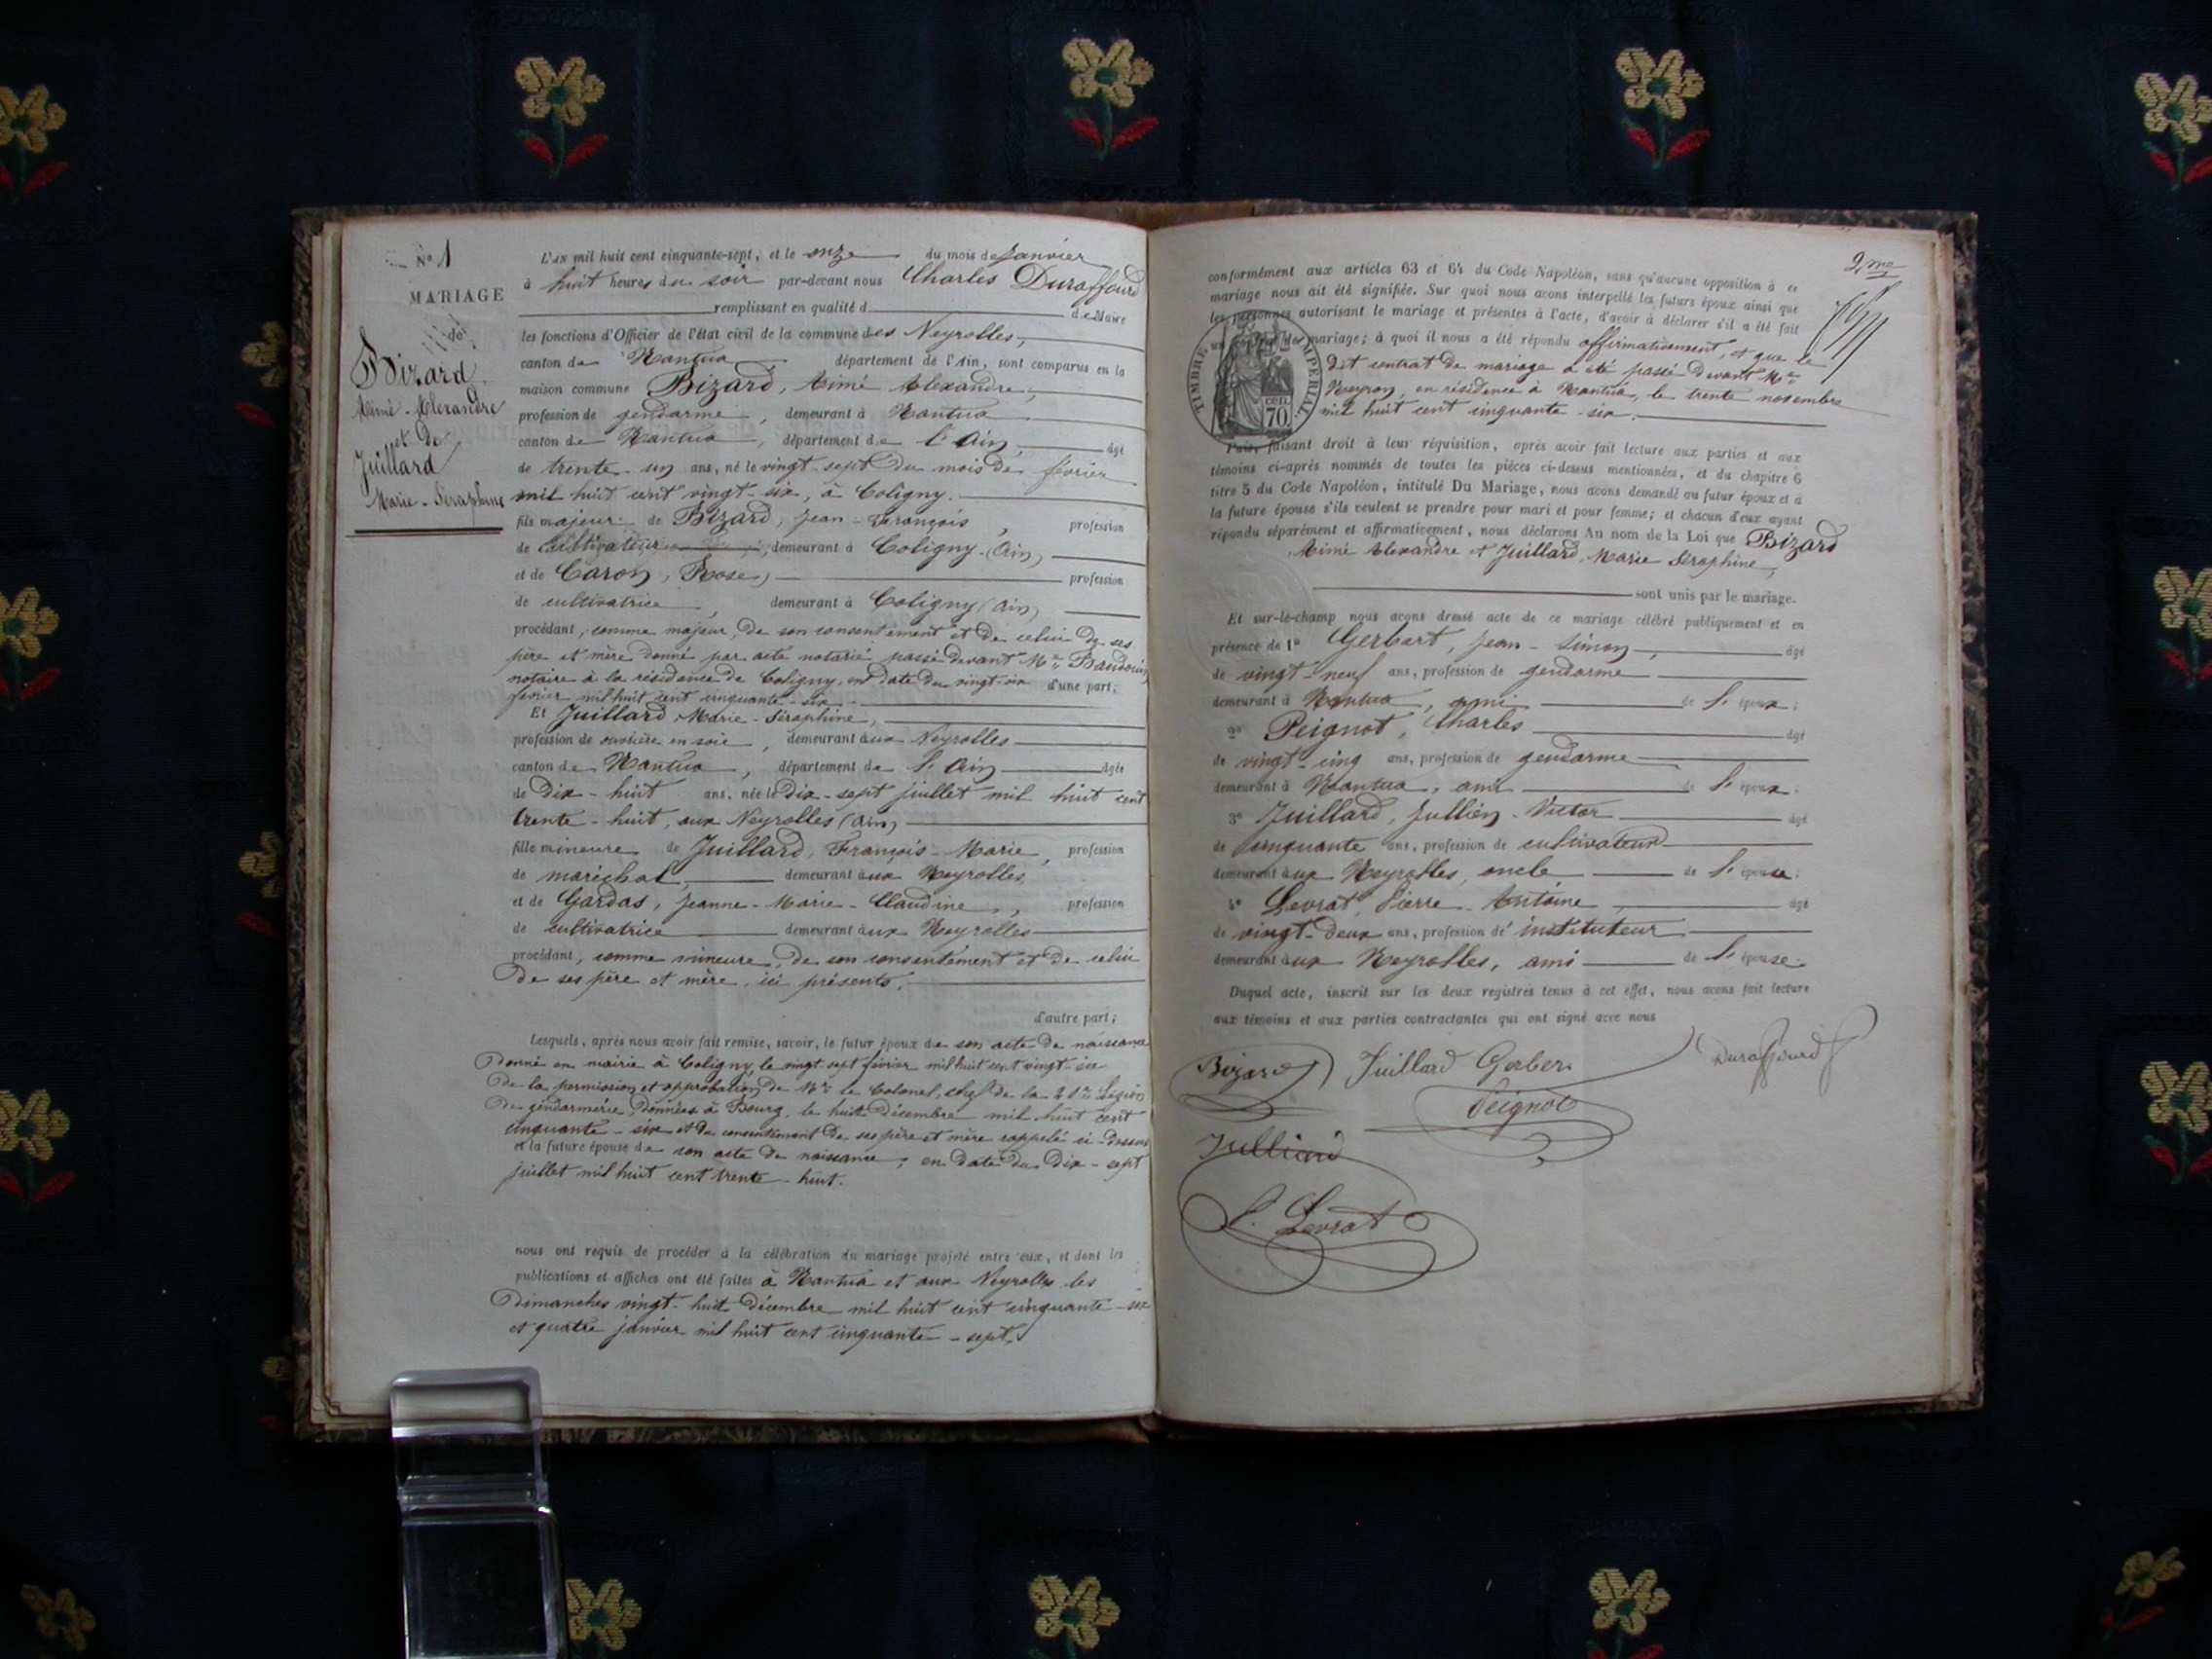 No 1
MARIAGE
de
Bizard
Aimé-Alexandre
et de
Juillard
Marie-Séraphine
L'AN mil huit cent cinquante-sept, et le onze du mois de janvier
à huit heures du soir par-devant nous Charles Duraffourd
remplissant en qualité d de Maire
les fonctions d'Officier de l'état civil de la commune des Neyrolles,
canton de Nantua, département de l'Ain, sont comparus en la
maison commune Bizard, Aimé Alexandre,
profession de gendarme, demeurant à Nantua
canton de Nantua, département de l'Ain, âgé
de trente-un ans, né le vingt-sept du mois de février
mil huit cent vingt-six, à Coligny.
fils majeur de Bizard, Jean-François, profession
de cultivateur, demeurant à Coligny (Ain)
et de Caron, Rose, profession
de cultivatrice, demeurant à Coligny (Ain)
procédant, comme majeur, de son consentement et de celui de ses
père et mère donné par acte notarié passé devant Me Baudouin
notaire à la résidence de Coligny, en date du vingt-six d'une part;
février mil huit cent cinquante-six.
Et Juillard, Marie-Séraphine,
profession de ouvrière en soie, demeurant aux Neyrolles
canton de Nantua, département de l'Ain âgée
de dix-huit ans, née le dix-sept juillet mil huit cent
trente-huit, aux Neyrolles (Ain)
fille mineure de Juillard, François-Marie, profession
de maréchal, demeurant aux Neyrolles,
et de Gardas, Jeanne-Marie-Claudine, profession
de cultivatrice demeurant aux Neyrolles
procédant, comme mineure, de son consentement et de celui
de ses père et mère, ici présents.
d'autre part;
Lesquels, après nous avoir fait remise, savoir, le futur époux de son acte de naissance
donné en mairie à Coligny, le vingt sept février mil huit cent vingt-six
de la permission et approbation de Mr le Colonel, chef de la 21e Légion
de gendarmerie, données à Bourg, le huit décembre mil huit cent
cinquante-six et du consentement de ses père et mère rappelé ci-dessus
et la future épouse de son acte de naissance, en date du dix-sept
juillet mil huit cent trente-huit.
nous ont requis de procéder à la célébration du mariage projeté entre eux, et dont les
publications et affiches ont été faites à Nantua et aux Neyrolles les
dimanches vingt-huit décembre mil huit cent cinquante-six
et quatre janvier mil huit cent cinquante-sept.
2me
conformément aux articles 63 et 64 du Code Napoléon, sans qu'aucune opposition à ce
mariage nous ait été signifiée. Sur quoi nous avons interpellé les futurs époux ainsi que
les personnes autorisant le mariage et présentes à l'acte, d'avoir à déclarer s'il a été fait
un de mariage; à quoi il nous a été répondu affirmativement, et que le
dit contrat de mariage a été passé devant Me
Neyron, en résidence à Nantua, le trente novembre
mil huit cent cinquante-six.
TIMBRE IMPERIAL
70 cen.
Puis, faisant droit à leur réquisition, après avoir fait lecture aux parties et aux
témoins ci-après nommés de toutes les pièces ci-dessus mentionnées, et du chapitre 6
titre 5 du Code Napoléon, intitulé Du Mariage, nous avons demandé au futur époux et à
la future épouse s'ils veulent se prendre pour mari et pour femme; et chacun d'eux ayant
répondu séparément et affirmativement, nous déclarons Au nom de la Loi que Bizard
Aimé Alexandre et Juillard, Marie Séraphine,
sont unis par le mariage.
Et sur-le-champ nous avons dressé acte de ce mariage célébré publiquement et en
présence de 1° Gerbert, Jean-Simon, âgé
de vingt-neuf ans, profession de gendarme
demeurant à Nantua, ami de l'époux;
2° Peignot, Charles âgé
de vingt-cinq ans, profession de gendarme
demeurant à Nantua, ami de l'époux;
3° Juillard, Jullien-Victor âgé
de cinquante ans, profession de cultivateur
demeurant aux Neyrolles, oncle de l'épouse;
4° Levrat, Pierre-Antoine, âgé
de vingt-deux ans, profession de instituteur
demeurant aux Neyrolles, ami de l'épouse.
Duquel acte, inscrit sur les deux registres tenus à cet effet, nous avons fait lecture
aux témoins et aux parties contractantes qui ont signé avec nous
Bizard Juillard Gerber Duraffourd
Peignot
Julliard
P. Levrat